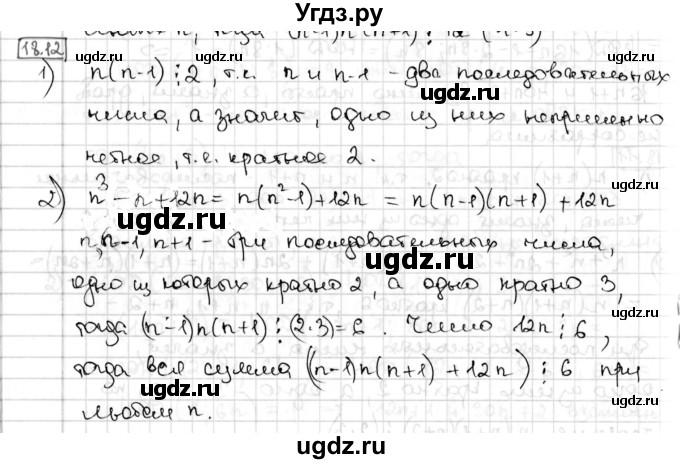 Угдз.ру
18.12
1) n(n-1)⋮2, т.е. n и n-1 - два последовательных
числа, а значит, одно из них непременно
четное, т.е. кратное 2.
2) n³ - n + 12n = n(n²-1)+12n = n(n-1)(n+1) + 12n
n, n-1, n+1 - три последовательных числа,
одно из которых кратно 2, а одно кратно 3,
тогда (n-1)n(n+1)⋮(2·3)=6. Число 12n⋮6,
тогда вся сумма ((n-1)n(n+1) + 12n)⋮6 при
любом n.
ugdz.ru
ugdz.ru
ugdz.ru
ugdz.ru
ugdz.ru
ugdz.ru
ugdz.ru
ugdz.ru
ugdz.ru
ugdz.ru
ugdz.ru
ugdz.ru
ugdz.ru